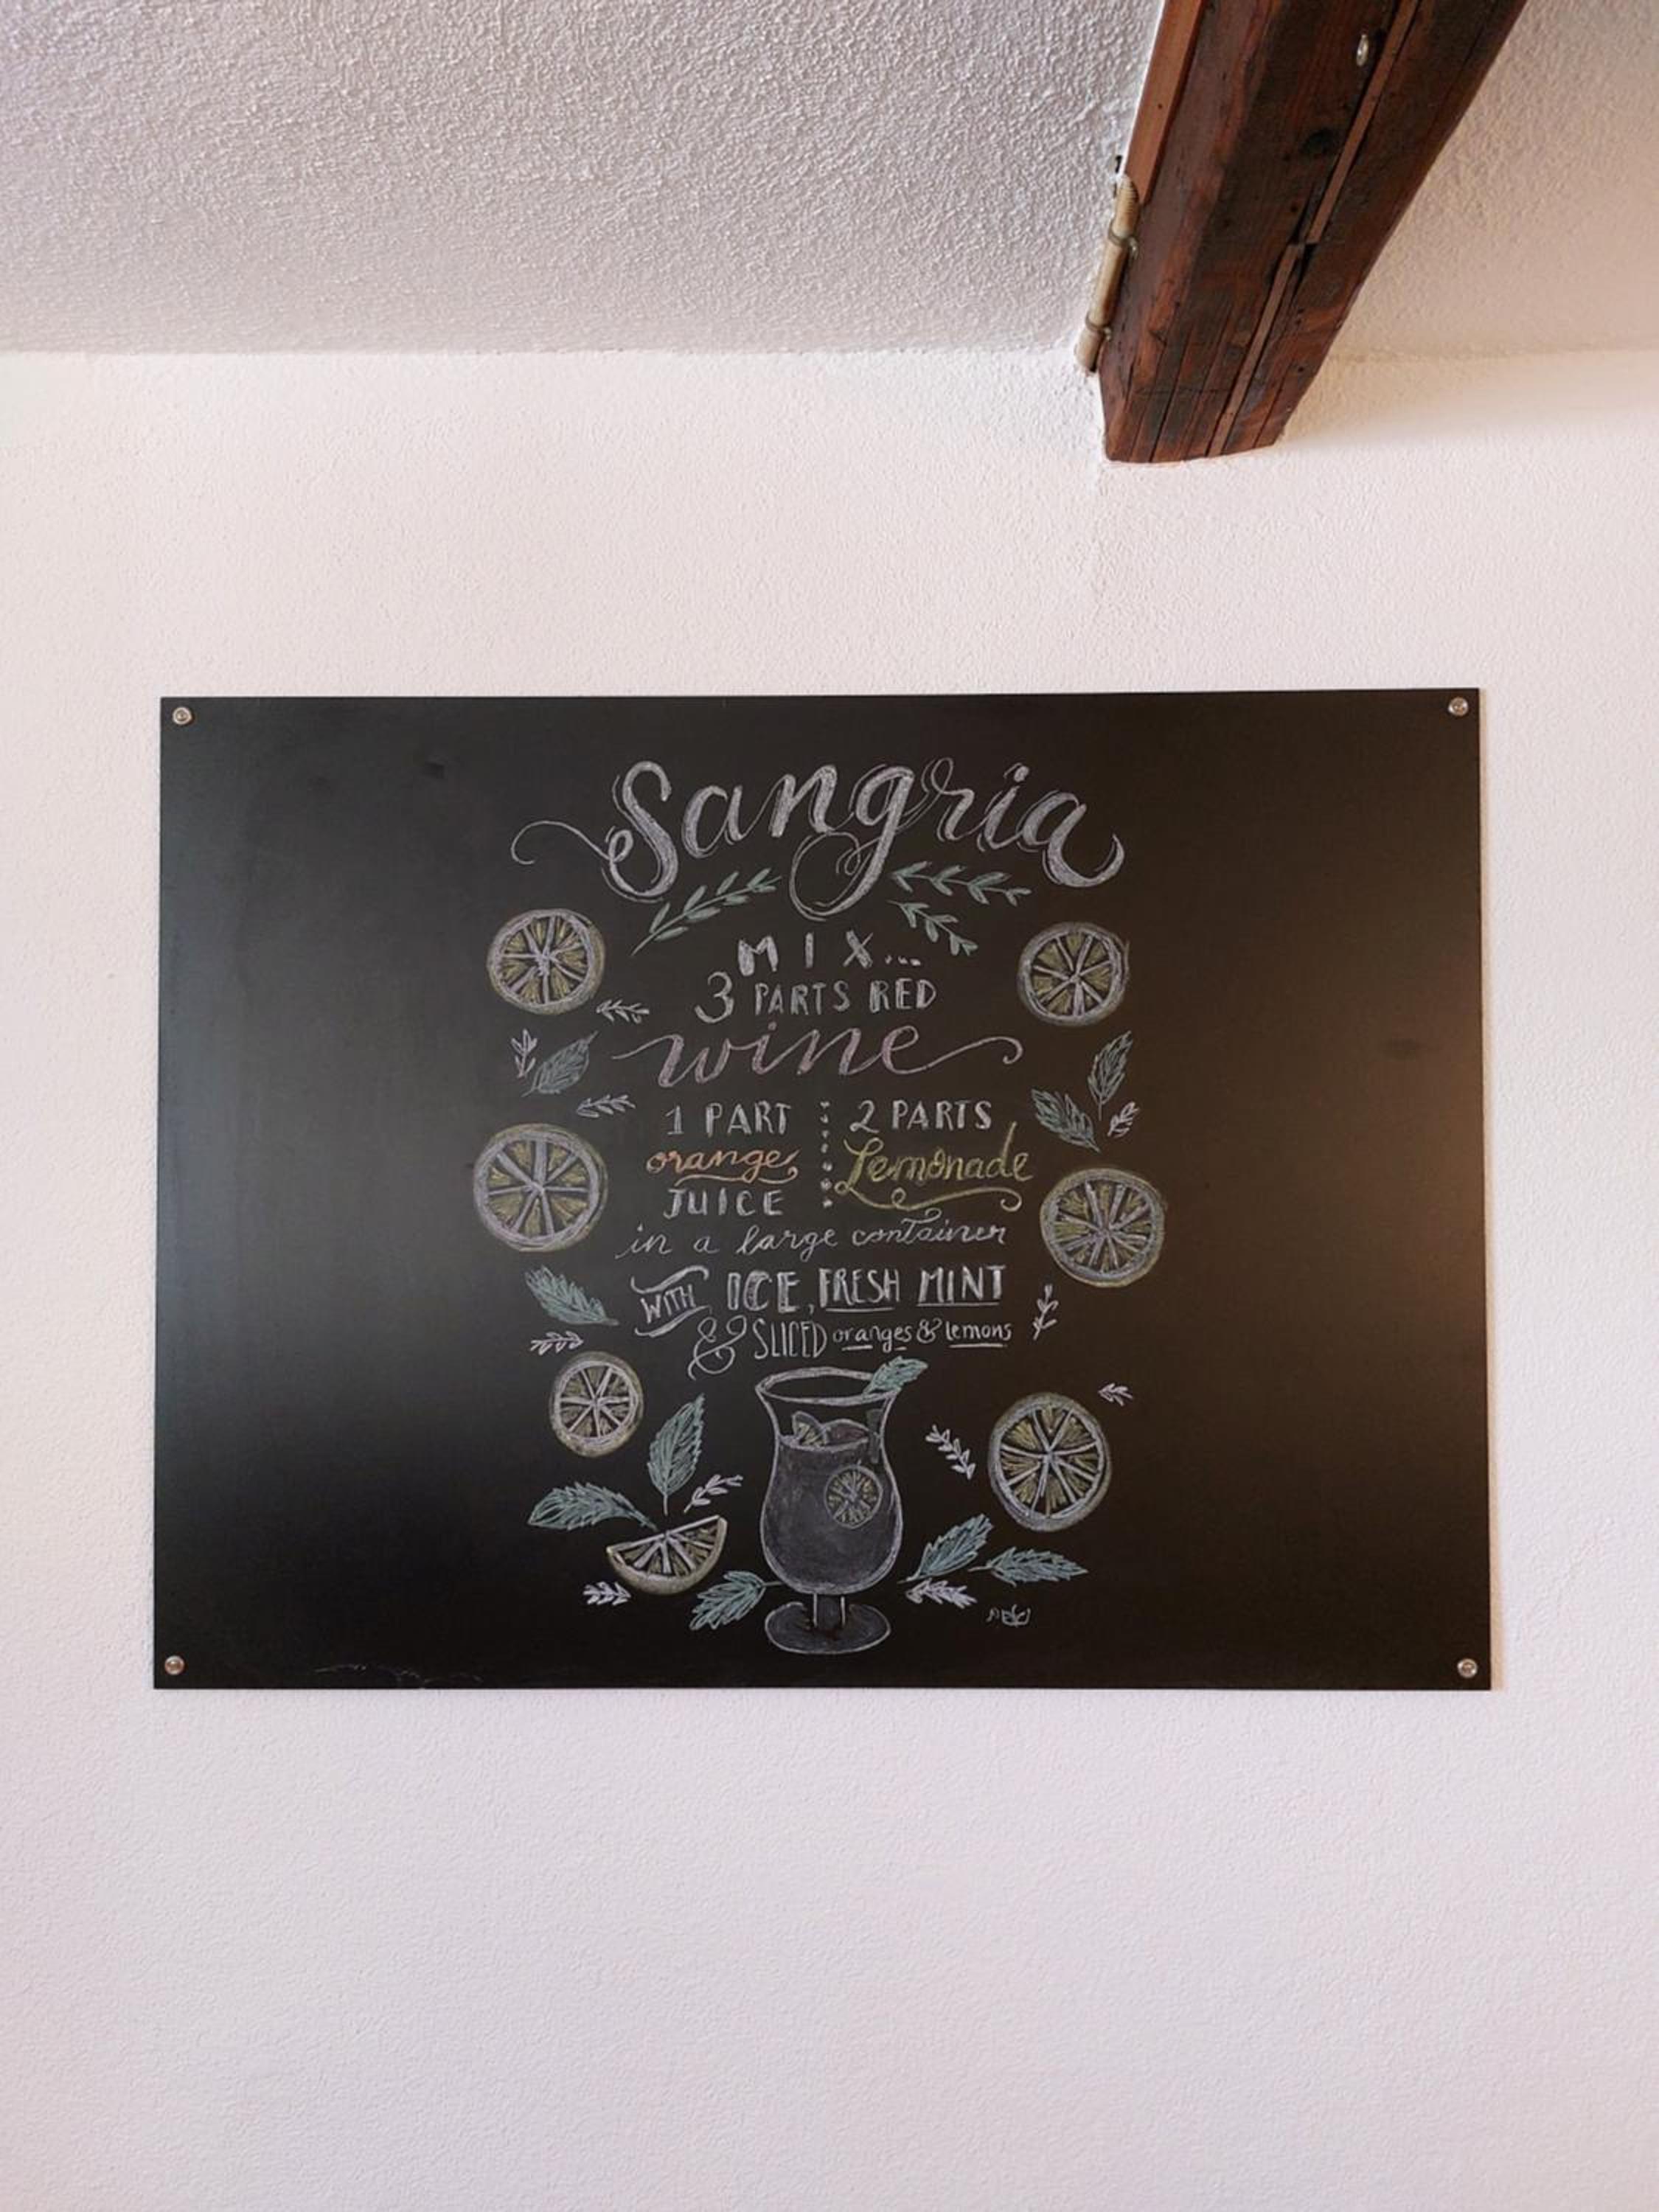 Sangria
MIX...
3 PARTS RED
wine
1 PART
orange
JUICE
2 PARTS
Lemonade
in a large container
WITH ICE, FRESH MINT
& SLICED oranges & lemons